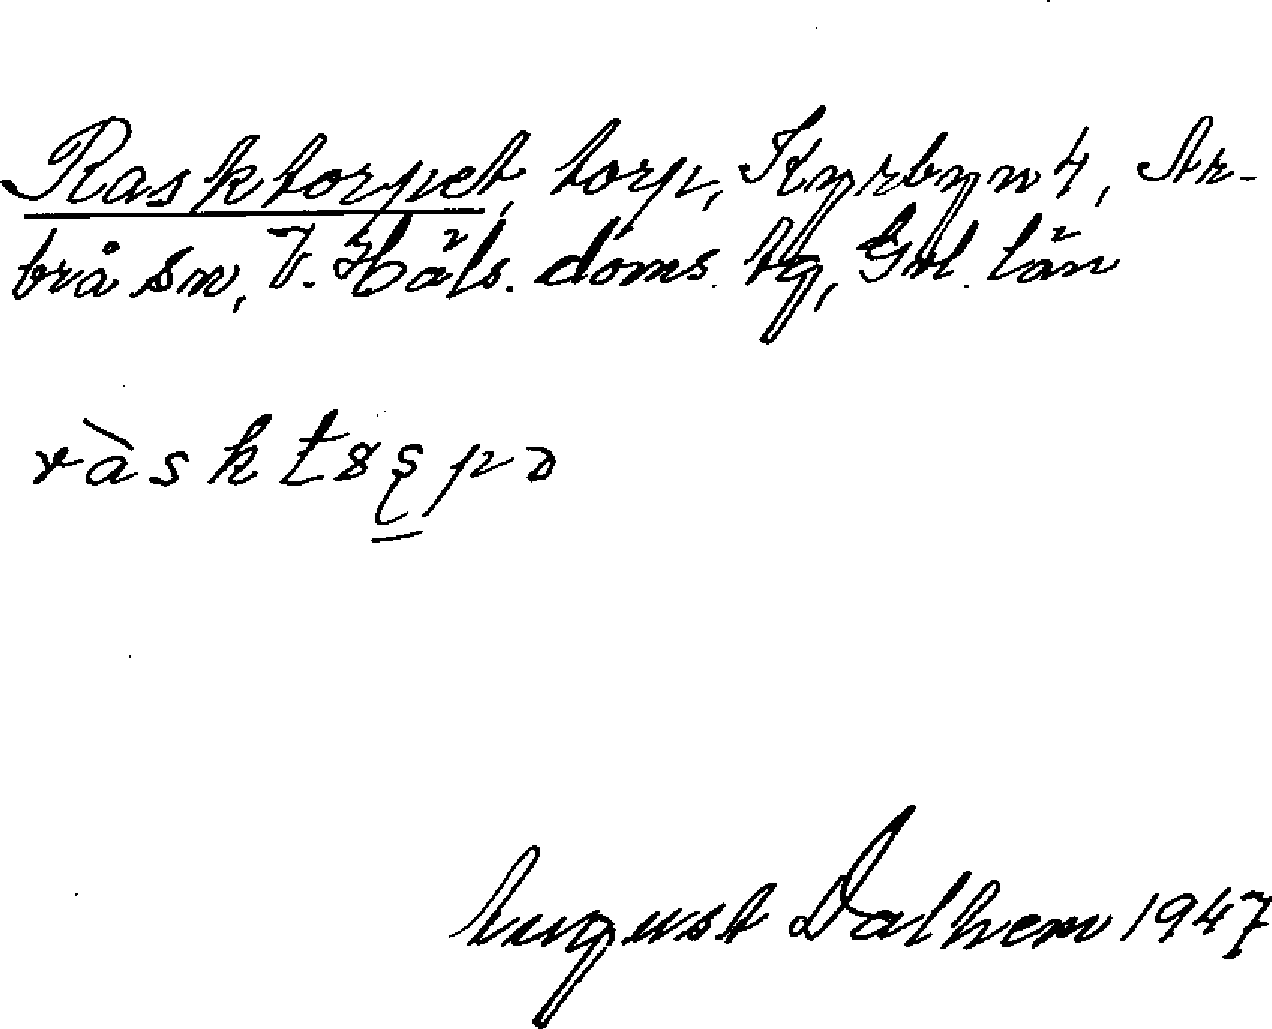 Rasktorpet, torp, Kyrbyn 4, Ar-
brå sn, V. Häls. doms. tg, Gvl. län
August Dalhem 1947